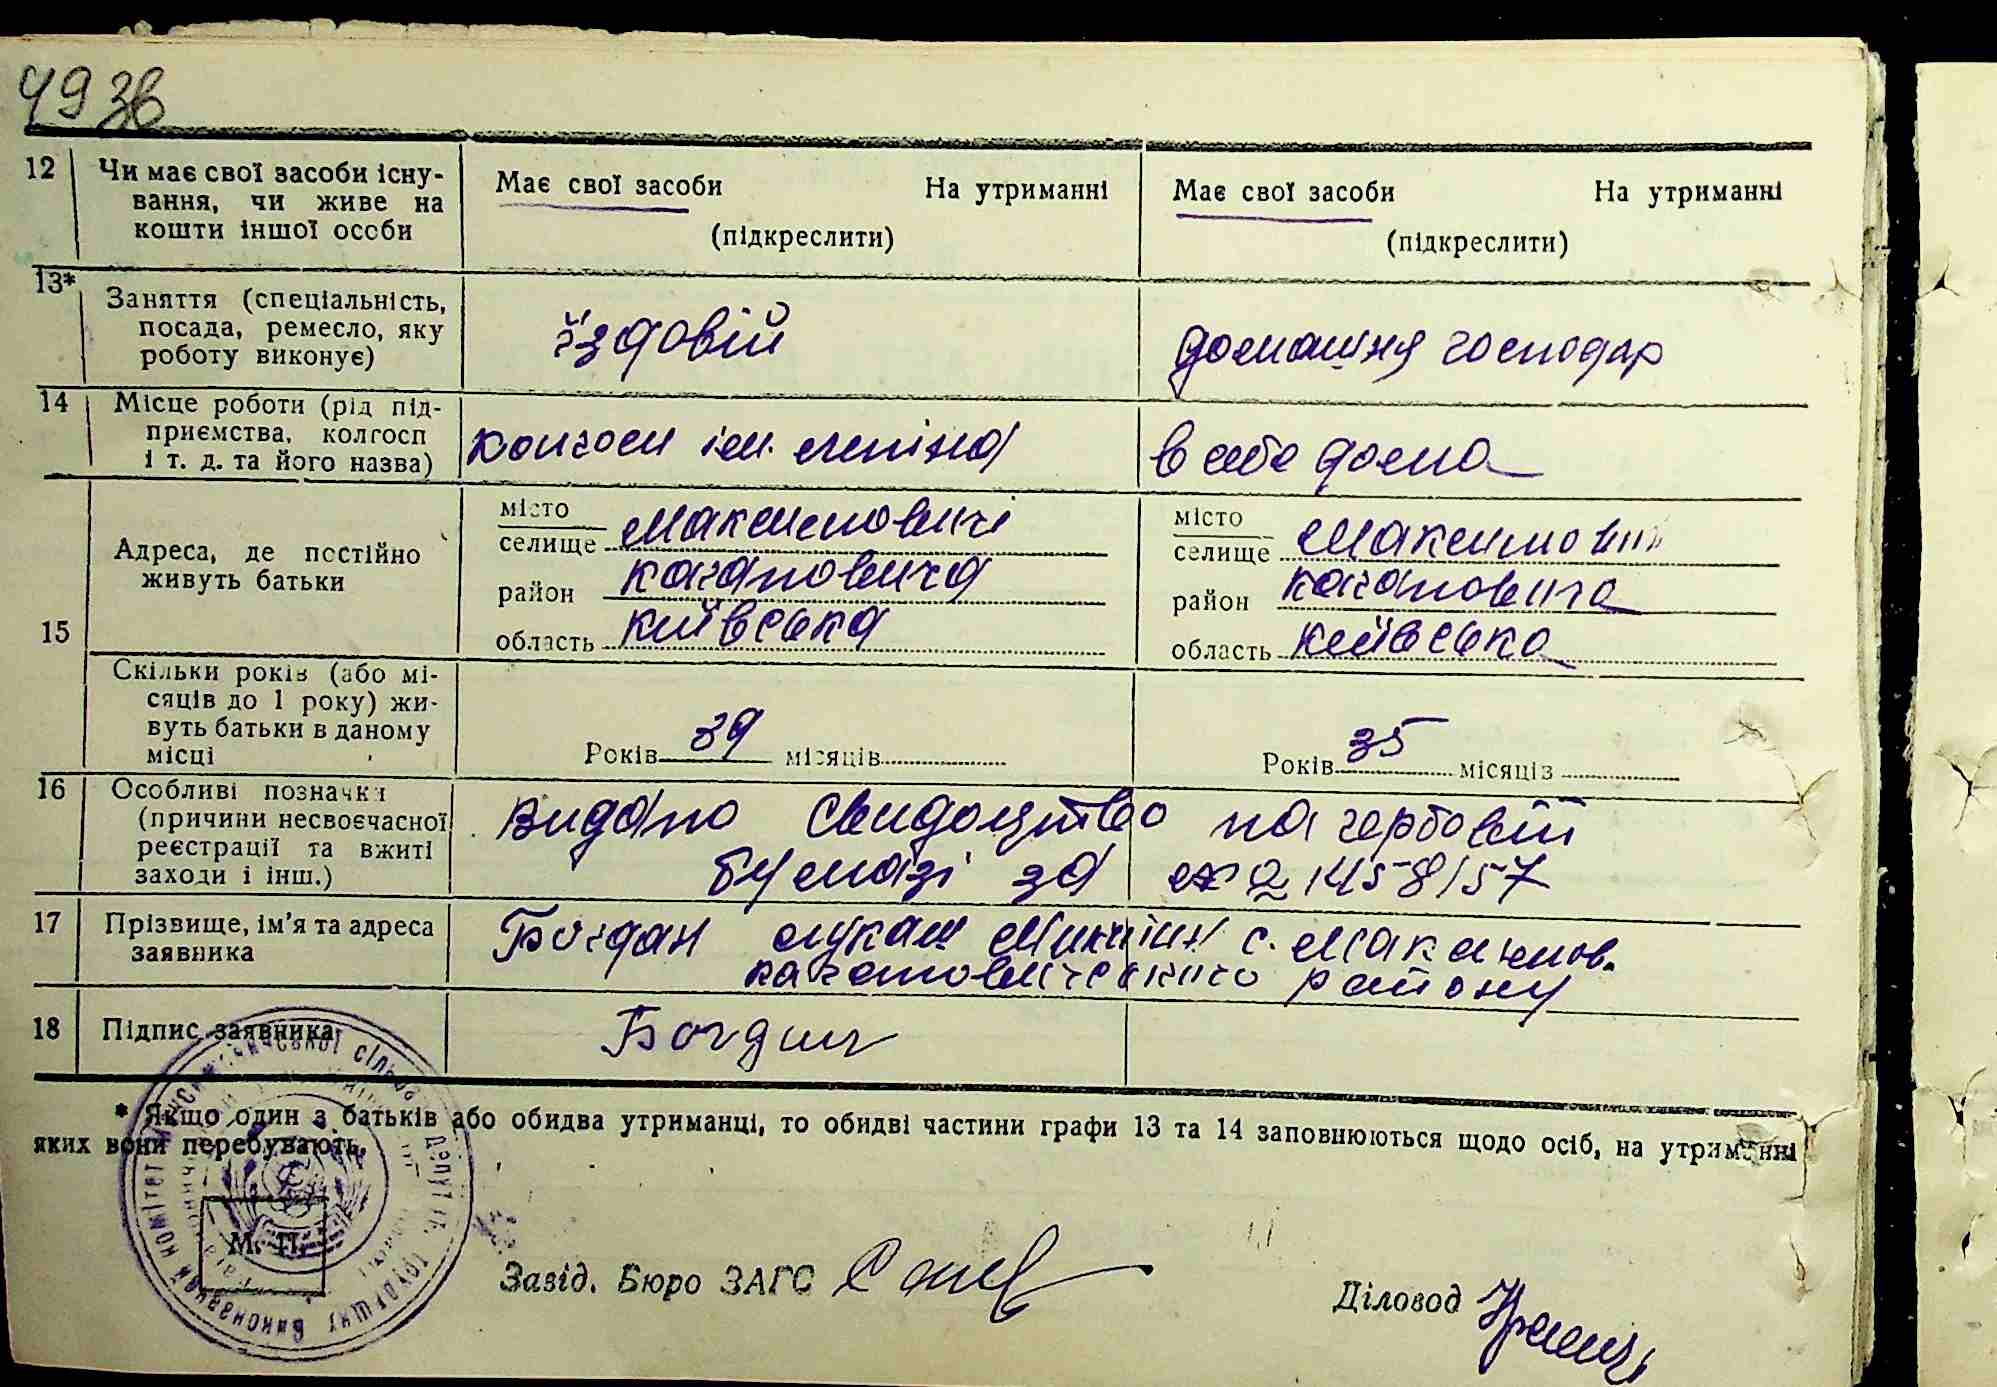 493в
12 Чи має свої засоби існу-
вання, чи живе на
кошти іншої особи
Має свої засоби На утриманні
(підкреслити)
Має свої засоби На утриманні
(підкреслити)
13* Заняття (спеціальність,
посада, ремесло, яку
роботу виконує)
їздовій
домашня господар
14 Місце роботи (рід під-
приємства, колгосп
і т. д. та його назва)
колгосп ім. леніна
в себе дома
15 Адреса, де постійно
живуть батьки
місто
селище Максимовичі
район кагановича
область київська
місто
селище Максимовичі
район кагановича
область київська
Скільки років (або мі-
сяців до 1 року) жи-
вуть батьки в даному
місці
Років 39 місяців
Років 35 місяців
16 Особливі позначки
(причини несвоєчасної
реєстрації та вжиті
заходи і інш.)
видано свидоцтво на гербовій
бумазі за 21458157
17 Прізвище, ім'я та адреса
заявника
Богдан лукаш с. Максимов.
району
18 Підпис заявника
Богдан
* Якщо один з батьків або обидва утриманці, то обидві частини графи 13 та 14 заповнюються щодо осіб, на утриманні
яких вони перебувають.
М. П.
Завід. Бюро ЗАГС
Діловод